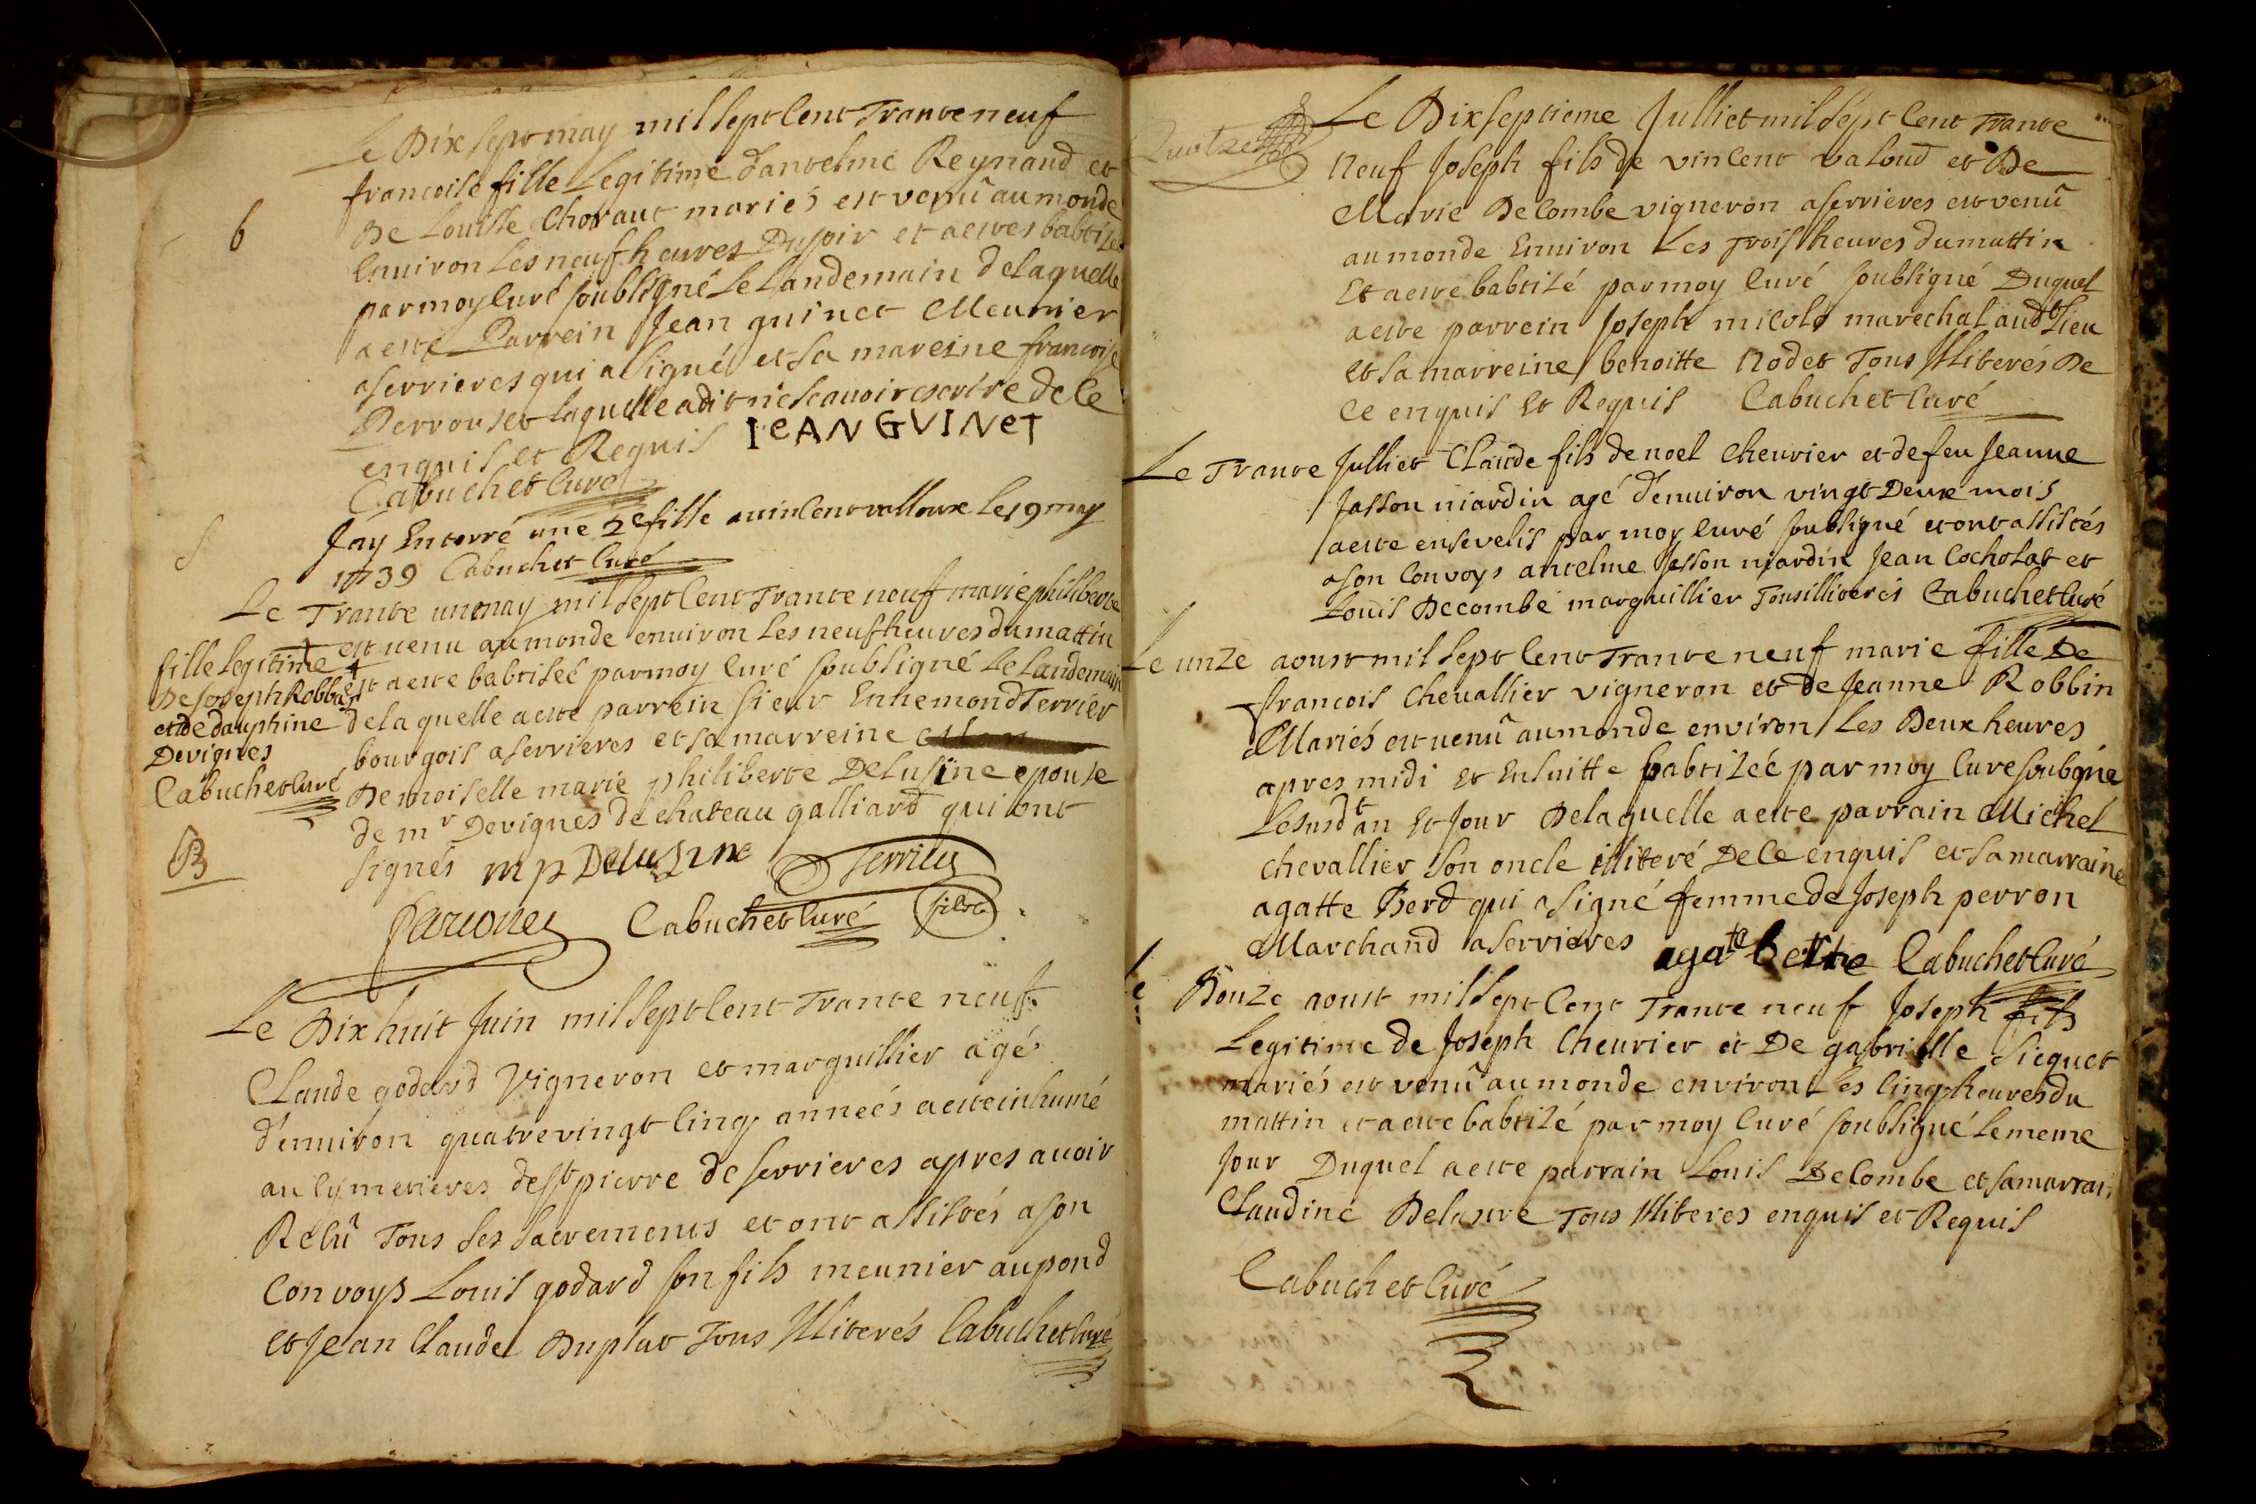 Le Dix sept may mil sept Cent Trante neuf
francoise fille Legitime dantelme Reynaud et
b
De Louisse Choraut mariés est venû au monde
Environ Les neuf heures Du soir et a estes babtisee
par moy Curé soubligné Le Landemain de laquelle
a esté Parrein Jean guinet Meunier
a serrieres qui a signé et sa mareine francoise
Perrouset laquelle a dit ne scavoir escrire de Ce
enquis et Requis IEAN GVINeT
Cabuchet Curé
Jay Enterré une 2e fille a vincent vulloux Le 19 may
S
1739 Cabuchet Curé
Le Trante un may mil sept Cent Trante neuf marie philiberte
fille legitime
De Joseph Robbas
et de dauphine
Devignes
Cabuchet Curé
B
est venu au monde environ Les neuf heures du mattin
et a este babtiseé par moy Curé soubligné Le Landemain
de la quelle a este parrein sieur Ennemond Terrier
bourgois a serrieres et sa marreine
Demoiselle marie philiberte Delusine epouse
de mr Devignes de chateau galliard qui ont
signés m p Delusine
Cabuchet Curé
Le Dix huit Juin mil sept Cent Trante neuf
Claude godard Vigneron et marguillier agé
d'environ quatre vingt Cinq anneés a este inhumé
au Cymetieres de st pierre de serrieres apres avoir
Recû Tous ses sacrements et ont assistés a son
Convoys Louis godard son fils meunier au pond
et Jean Claude Duplat Tous Illiterés Cabuchet Curé
Le Dix septieme Julliet mil sept Cent Trante
neuf Joseph fils de vincent valoud et De
Marie Decombe vigneron a serrieres est venû
au monde Environ Les Trois heures du mattin
Et a este babtizé par moy Curé soubligné Duquel
a este parrein Joseph micolo marechal aud't Lieu
et sa marreine benoitte Nodet Tous Illiterés De
Ce enquis Et Requis Cabuchet Curé
Le Trante Julliet Claude fils de noel Chevrier et de feu Jeanne
Jasson niardin agé d'environ vingt Deux mois
a este ensevelis par moy Curé soubligné et ont assistés
a son Convoys antelme Jasson niardin Jean Cocholat et
Louis Decombe marguillier Tous illiterés Cabuchet Curé
Le unze aoust mil sept Cent Trante neuf marie fille De
francois Chevallier vigneron et de Jeanne Robbin
Mariés est venû au monde environ Les Deux heures
apres midi et Ensuitte babtizeé par moy Cure soubgné
Le susdt an et Jour De laquelle a este parrain Michel
Chevallier son oncle illiteré De Ce enquis et sa marraine
agatte Berd qui a signé femme de Joseph perron
Marchand a serrieres agate berte Cabuchet Curé
Le Douze aoust mil sept Cent Trante neuf Joseph fils
Legitime de Joseph Chevrier et De gabrielle Sicquet
mariés est venû au monde environ Les Cinq heures du
mattin et a este babtizé par moy Curé soubligné Le meme
Jour Duquel a este parrain Louis Decombe et sa marrain
Claudine Delastre Tous Illiteres enquis et Requis
Cabuchet Curé